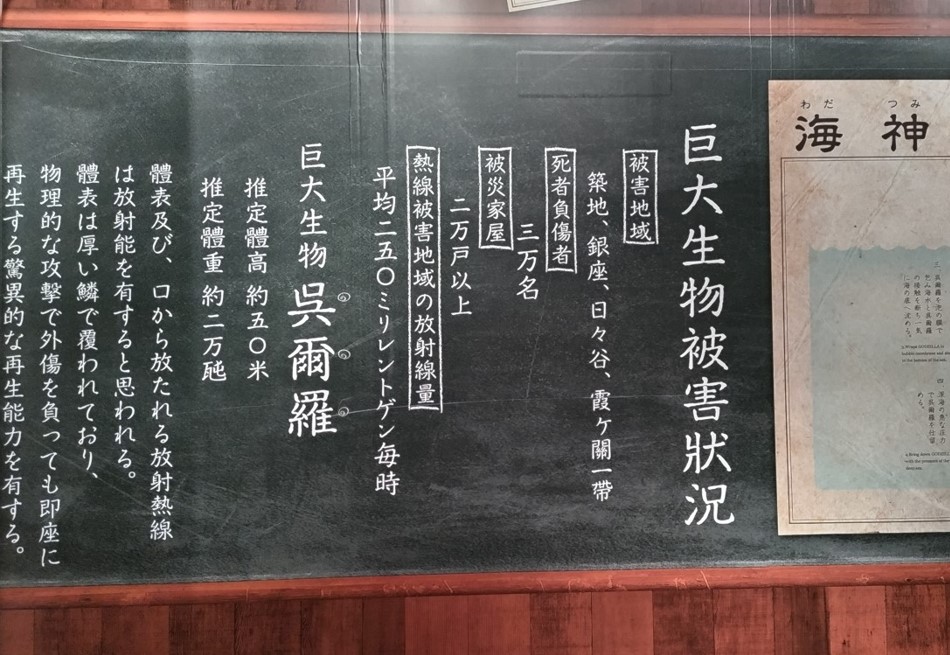 わだ つみ
海神
巨大生物被害狀況
被害地域
築地、銀座、日々谷、霞ケ關一帶
死者負傷者
三万名
被災家屋
二万戸以上
熱線被害地域の放射線量
平均二五〇ミリレントゲン毎時
巨大生物 呉爾羅
推定體高 約五〇米
推定體重 約二万瓲
體表及び、口から放たれる放射熱線
は放射能を有すると思われる。
體表は厚い鱗で覆われており、
物理的な攻撃で外傷を負っても即座に
再生する驚異的な再生能力を有する。